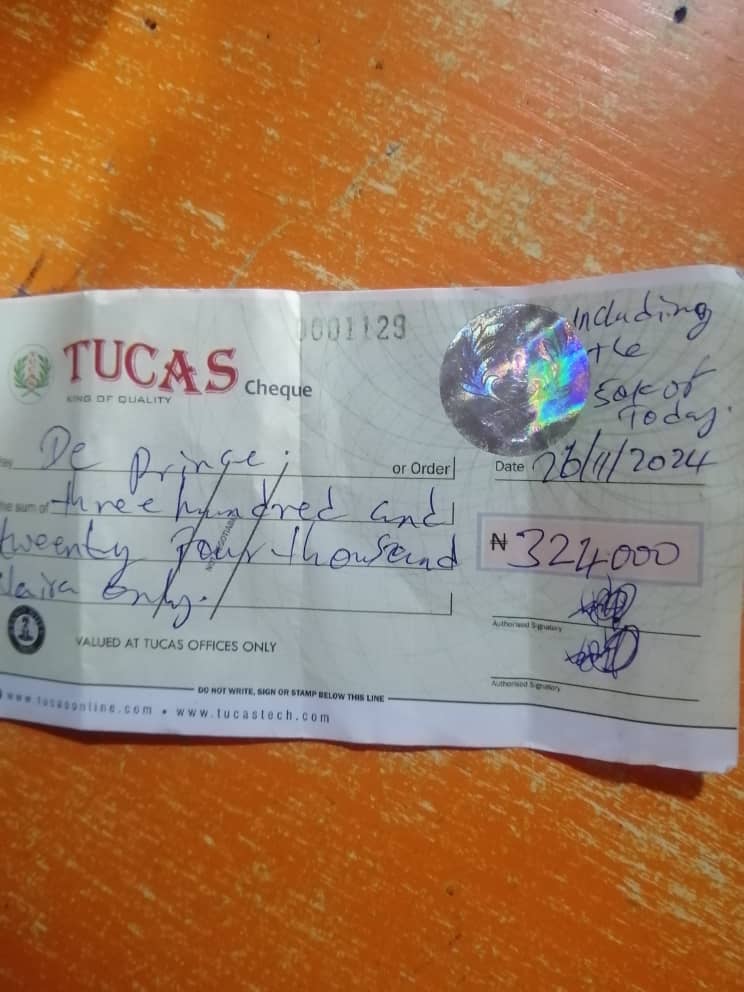 0001129
TUCAS Cheque
KING OF QUALITY
Including
the
50k of
Today.
De Prince.
or Order
Date 26/11/2024
the sum of three hundred and
tweenty four thousand
Naira only.
₦ 324000
Authorised Signatory
Authorised Signatory
VALUED AT TUCAS OFFICES ONLY
DO NOT WRITE, SIGN OR STAMP BELOW THIS LINE
www.tucasonline.com • www.tucastech.com